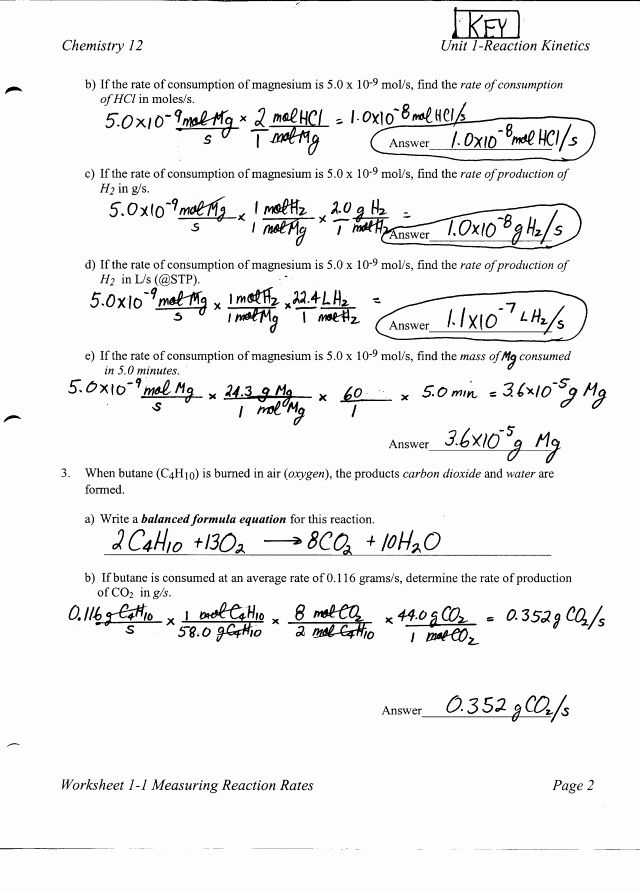 KEY
Chemistry 12 Unit 1-Reaction Kinetics
b) If the rate of consumption of magnesium is 5.0 x 10-9 mol/s, find the rate of consumption
of HCl in moles/s.
5.0×10⁻⁹ mol Mg/s × 2 mol HCl/1 mol Mg = 1.0×10⁻⁸ mol HCl/s
Answer 1.0×10⁻⁸ mol HCl/s
c) If the rate of consumption of magnesium is 5.0 x 10-9 mol/s, find the rate of production of
H2 in g/s.
5.0×10⁻⁹ mol Mg/s × 1 mol H₂/1 mol Mg × 2.0 g H₂/1 mol H₂ =
Answer 1.0×10⁻⁸ g H₂/s
d) If the rate of consumption of magnesium is 5.0 x 10-9 mol/s, find the rate of production of
H2 in L/s (@STP).
5.0×10⁻⁹ mol Mg/s × 1 mol H₂/1 mol Mg × 22.4 L H₂/1 mol H₂ =
Answer 1.1×10⁻⁷ L H₂/s
e) If the rate of consumption of magnesium is 5.0 x 10-9 mol/s, find the mass of Mg consumed
in 5.0 minutes.
5.0×10⁻⁹ mol Mg/s × 24.3 g Mg/1 mol Mg × 60/1 × 5.0 min = 3.6×10⁻⁵ g Mg
Answer 3.6×10⁻⁵ g Mg
3. When butane (C4H10) is burned in air (oxygen), the products carbon dioxide and water are
formed.
a) Write a balanced formula equation for this reaction.
2C4H10 + 13O2 → 8CO2 + 10H2O
b) If butane is consumed at an average rate of 0.116 grams/s, determine the rate of production
of CO2 in g/s.
0.116 g C4H10/s × 1 mol C4H10/58.0 g C4H10 × 8 mol CO2/2 mol C4H10 × 44.0 g CO2/1 mol CO2 = 0.352 g CO2/s
Answer 0.352 g CO2/s
Worksheet 1-1 Measuring Reaction Rates Page 2